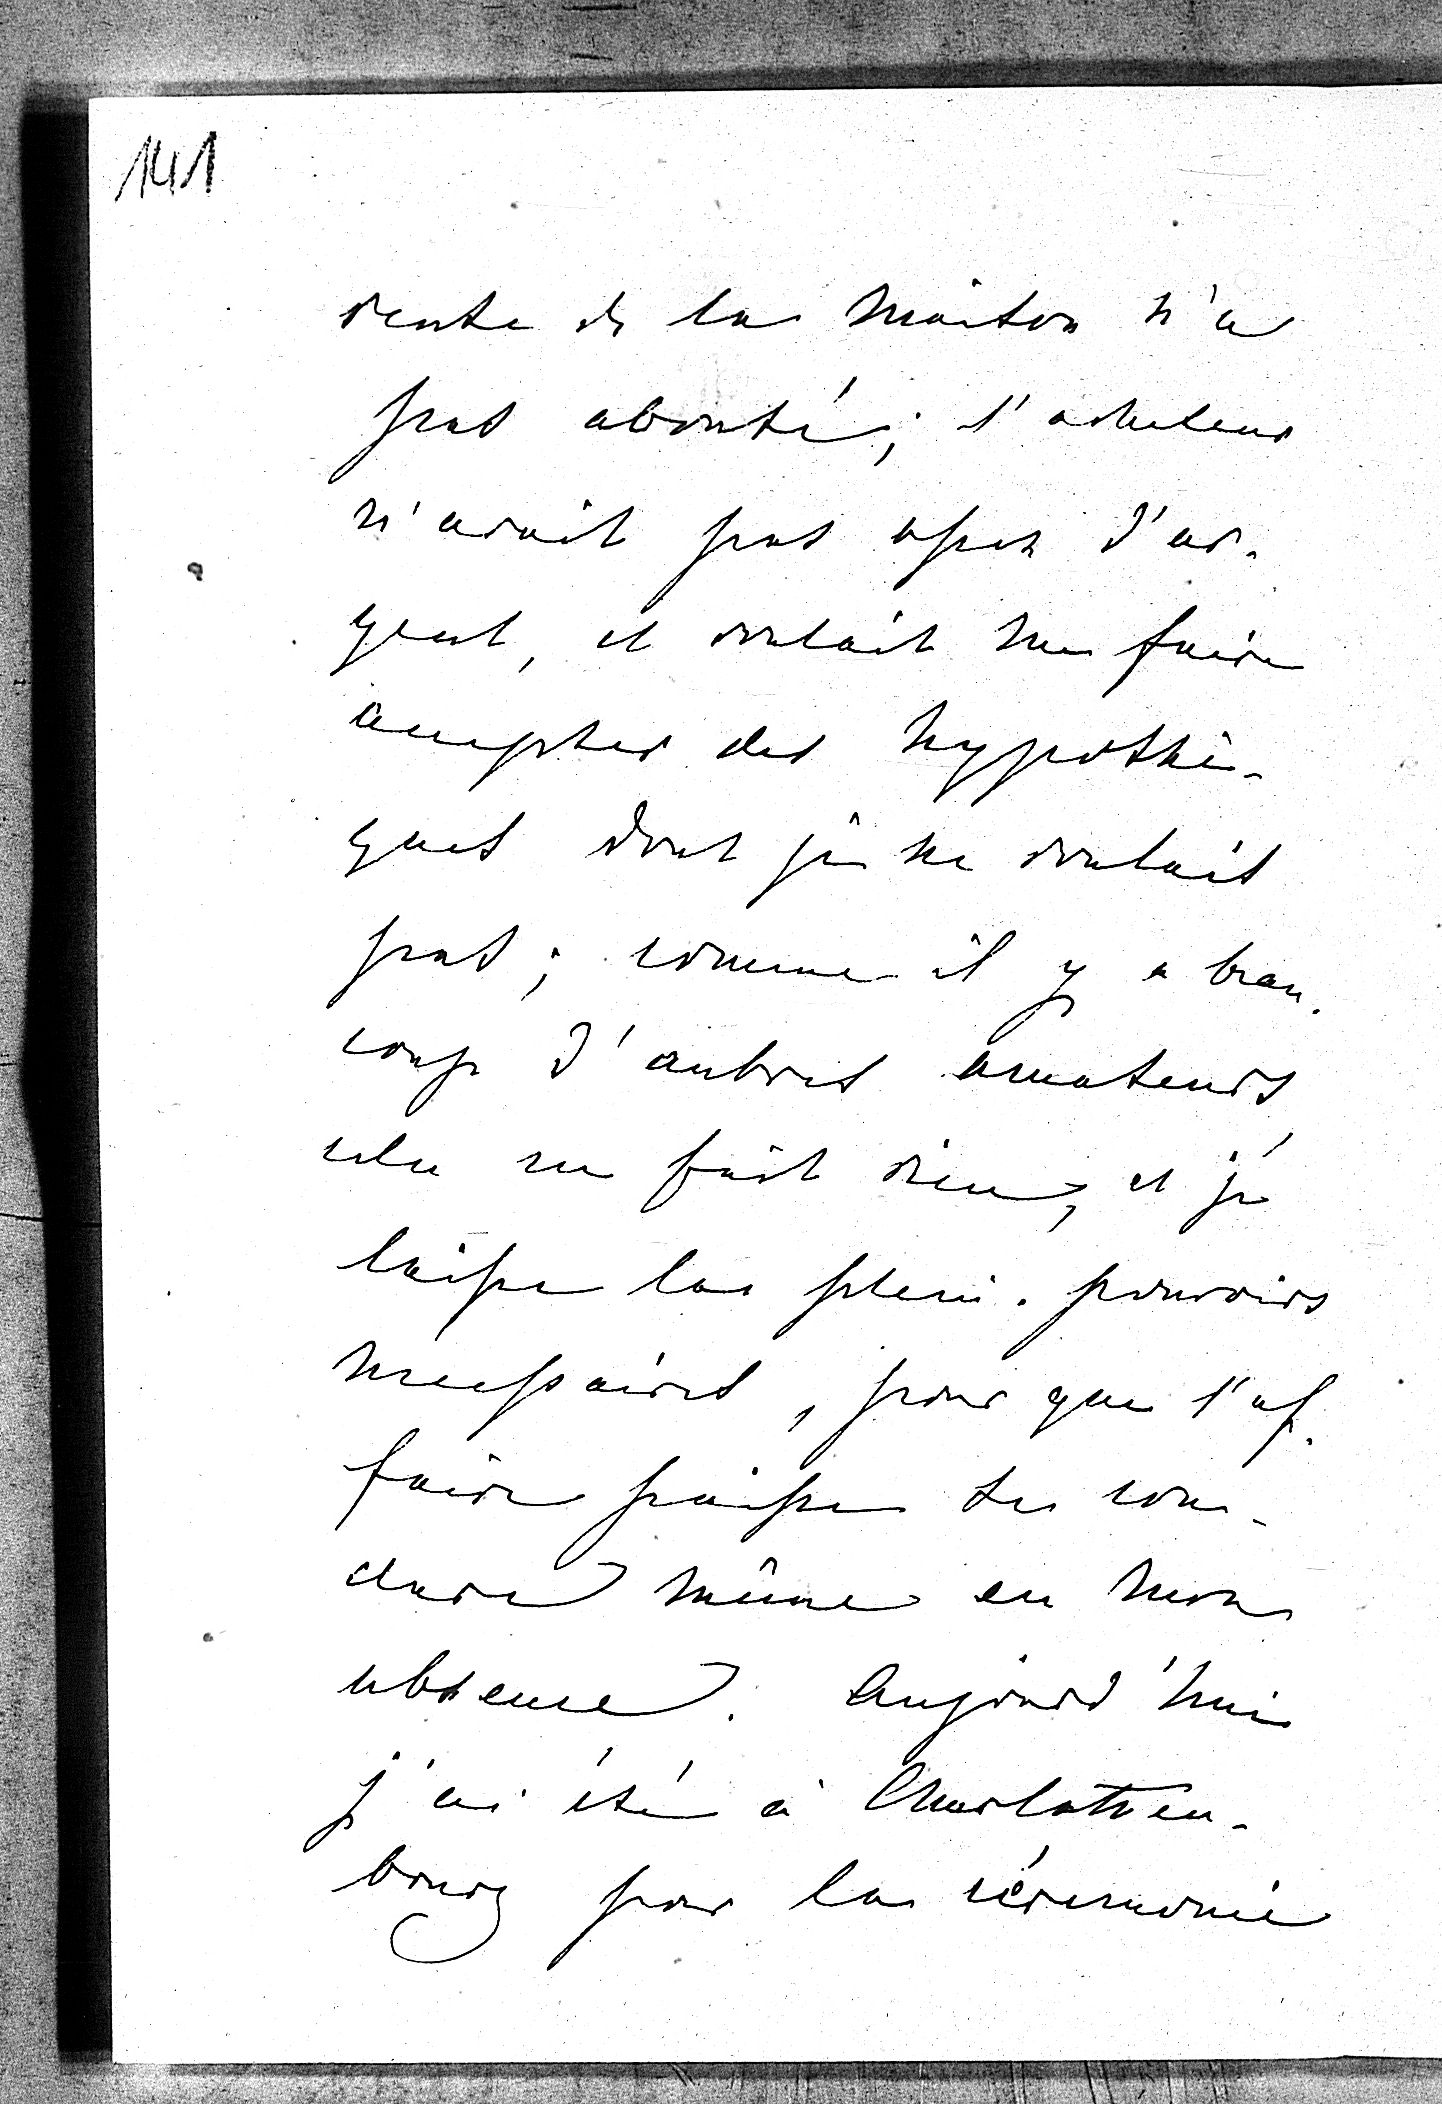 141
vente de la maison n'a
pas abouti; l'acheteur
n'avait pas assez d'ar-
gent, et voulait me faire
accepter des hypothè-
ques dont je ne voulais
pas; comme il y a beau-
coup d'autres amateurs,
cela ne fait rien, et je
laisse les plein-pouvoirs
necessaires, pour que l'af-
faire puisse se con-
clure même en mon
absence. Aujourd'hui
j'ai été à Charlotten-
bourg pour la cérémonie